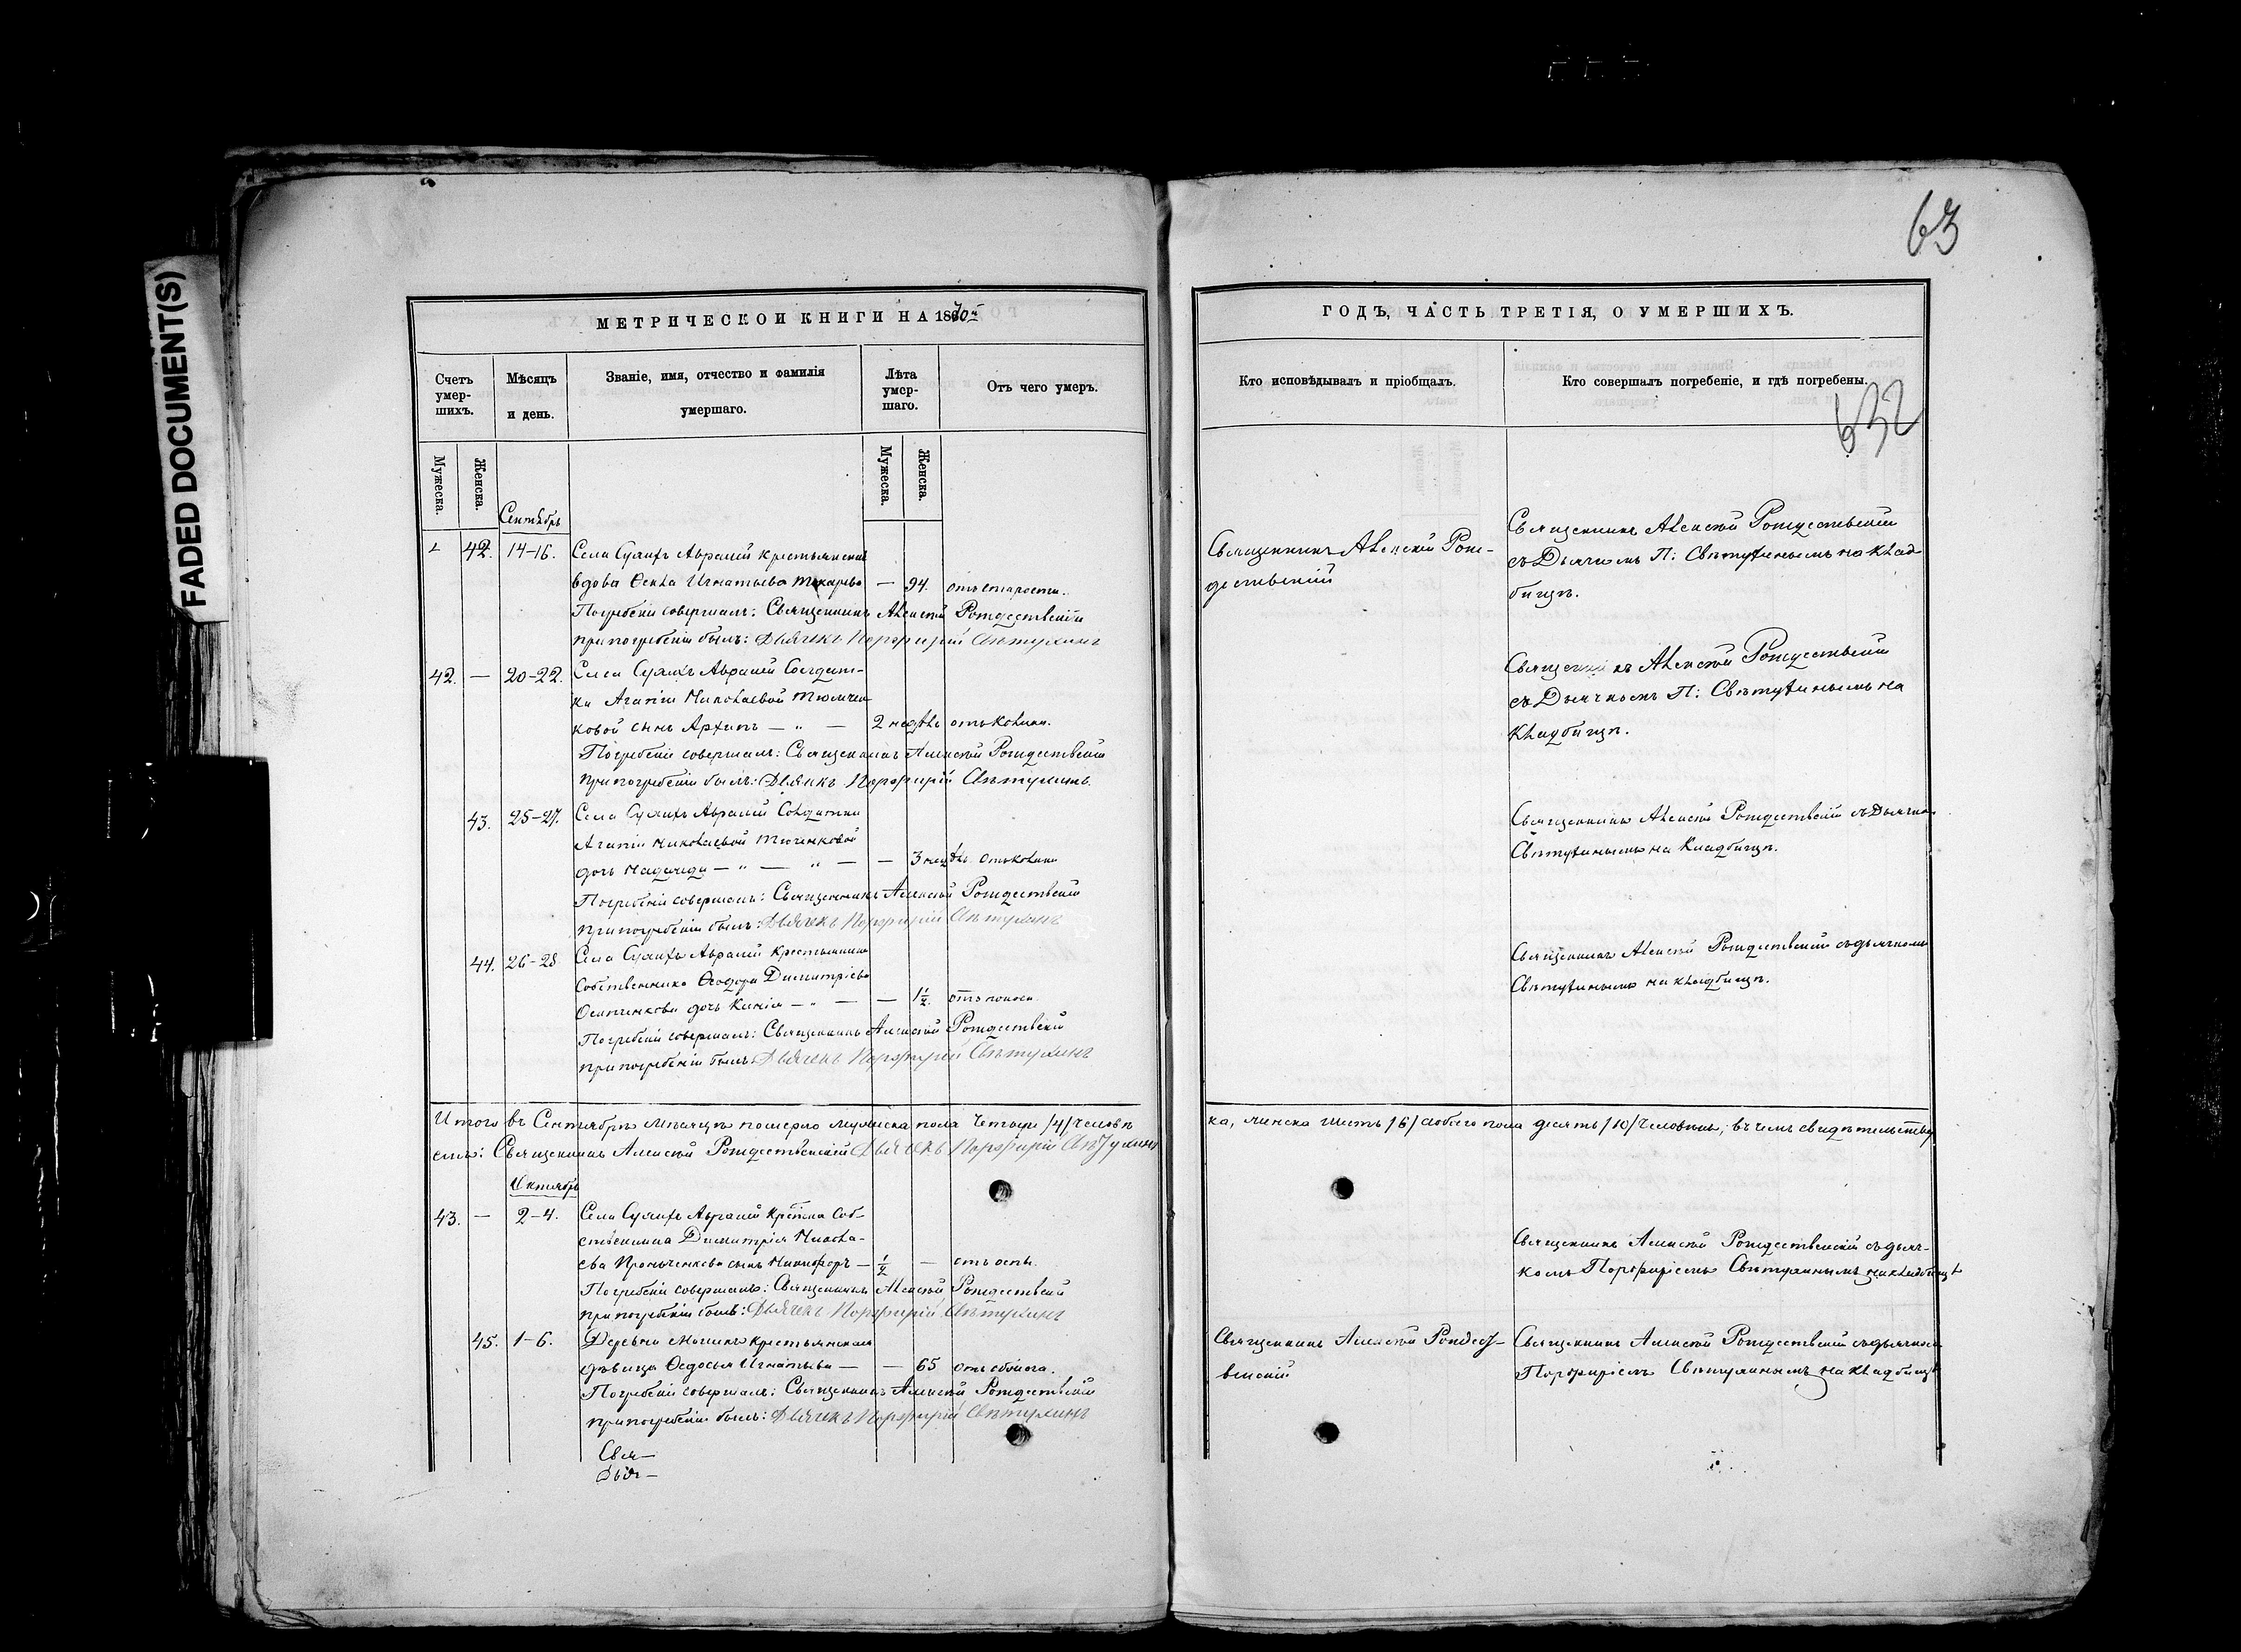 FADED DOCUMENT(S)
63
МЕТРИЧЕСКОЙ КНИГИ НА 1870й
ГОДЪ, ЧАСТЬ ТРЕТІЯ, О УМЕРШИХЪ.
Счетъ умер-шихъ.
Мѣсяцъ и день.
Званіе, имя, отчество и фамилія умершаго.
Лѣта умер-шаго.
Отъ чего умеръ.
Кто исповѣдывалъ и пріобщалъ.
Кто совершалъ погребеніе, и гдѣ погребены.
632
Мужеска.
Женска.
Мужеска.
Женска.
Сентябрь
42. 14-16. Села крестьянская
вдова Игнатьева — 94. отъ старости.
Погребеніе совершалъ: Священникъ Алексѣй Рождественскій
при погребеніи былъ: Дьячекъ Порфирій Свѣтухинъ
Священникъ Алексѣй Рож-
дественскій
Священникъ Алексѣй Рождественскій
съ Дьячкомъ П: Свѣтухинымъ на клад-
бищѣ.
42. — 20-22. Села Солдат-
ки Агапіи Николаевой
ковой сынъ Архипъ — „ — 2 недѣль
Погребеніе совершалъ: Священникъ Алексѣй Рождественскій
при погребеніи былъ: Дьячекъ Порфирій Свѣтухинъ.
Священникъ Алексѣй Рождественскій
съ Дьячкомъ П: Свѣтухинымъ на
кладбищѣ.
43. 25-27. Села Солдатки
Агапіи Николаевой
дочь — „ — „ — — 3 недѣль
Погребеніе совершалъ: Священникъ Алексѣй Рождественскій
при погребеніи былъ: Дьячекъ Порфирій Свѣтухинъ
Священникъ Алексѣй Рождественскій съ Дьячком
Свѣтухинымъ на Кладбищѣ.
44. 26-28 Села крестьянина
Собственника Ѳеодора Димитріева
дочь — „ — — 1½. отъ поноса.
Погребеніе совершалъ: Священникъ Алексѣй Рождественскій
при погребеніи былъ: Дьячекъ Порфирій Свѣтухинъ
Священникъ Алексѣй Рождественскій съ дьячкомъ
Свѣтухинымъ на кладбищѣ.
Итого въ Сентябрѣ мѣсяцѣ померло мужеска пола четыре /4/ человѣ
ка, женска шесть /6/ обоего пола десять /10/ человѣкъ; въ чемъ свидѣтельству
емъ: Священникъ Алексѣй Рождественскій Дьячекъ Порфирій Свѣтухинъ
Октябрь
43. — 2-4. Села Соб-
ственника Димитрія Никола-
ева сынъ Никифоръ — ½ — отъ оспы.
Погребеніе совершалъ: Священникъ Алексѣй Рождественскій
при погребеніи былъ: Дьячекъ Порфирій Свѣтухинъ
Священникъ Алексѣй Рождественскій съ дьяч-
комъ Порфиріемъ Свѣтухинымъ на кладбищѣ
45. 1-6. Деревни крестьянская
дѣвица Ѳедосья Игнатьева — — 65
Погребеніе совершалъ: Священникъ Алексѣй Рождественскій
при погребеніи былъ: Дьячекъ Порфирій Свѣтухинъ
Священникъ Алексѣй Рождест-
венскій
Священникъ Алексѣй Рождественскій съ дьячком
Порфиріемъ Свѣтухинымъ на кладбищѣ
Свя—
Дья—